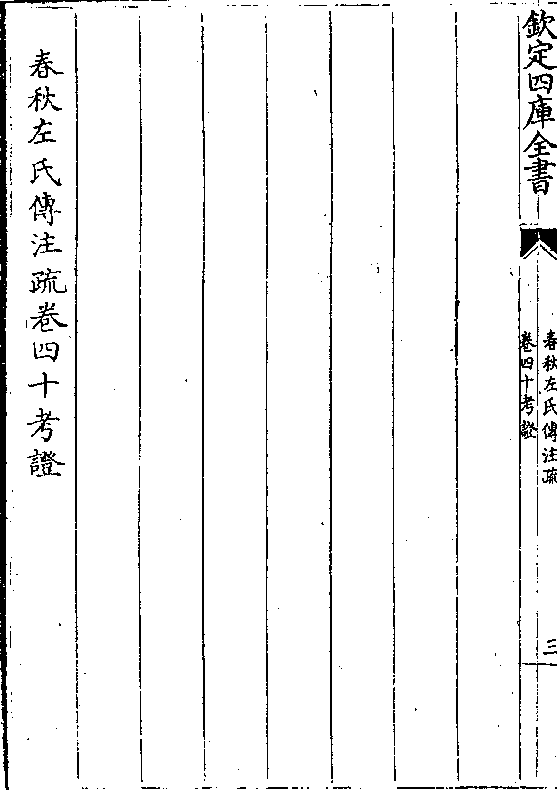 欽定四庫全書
春秋左氏傳注疏
卷四十考證
三
春秋左氏傳注疏卷四十考證